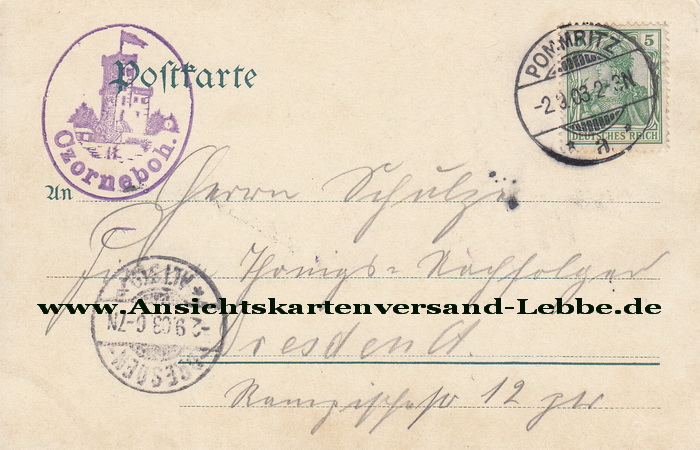 Postkarte
Czorneboh.
POMMRITZ
-2.9.03.2-3N
* a *
5
DEUTSCHES REICH
An
Herrn Schulze
Königs-Nachfolger
www.Ansichtskartenversand-Lebbe.de
ALTST.
-2.9.03. 6-7N
DRESDEN
Dresden A.
12